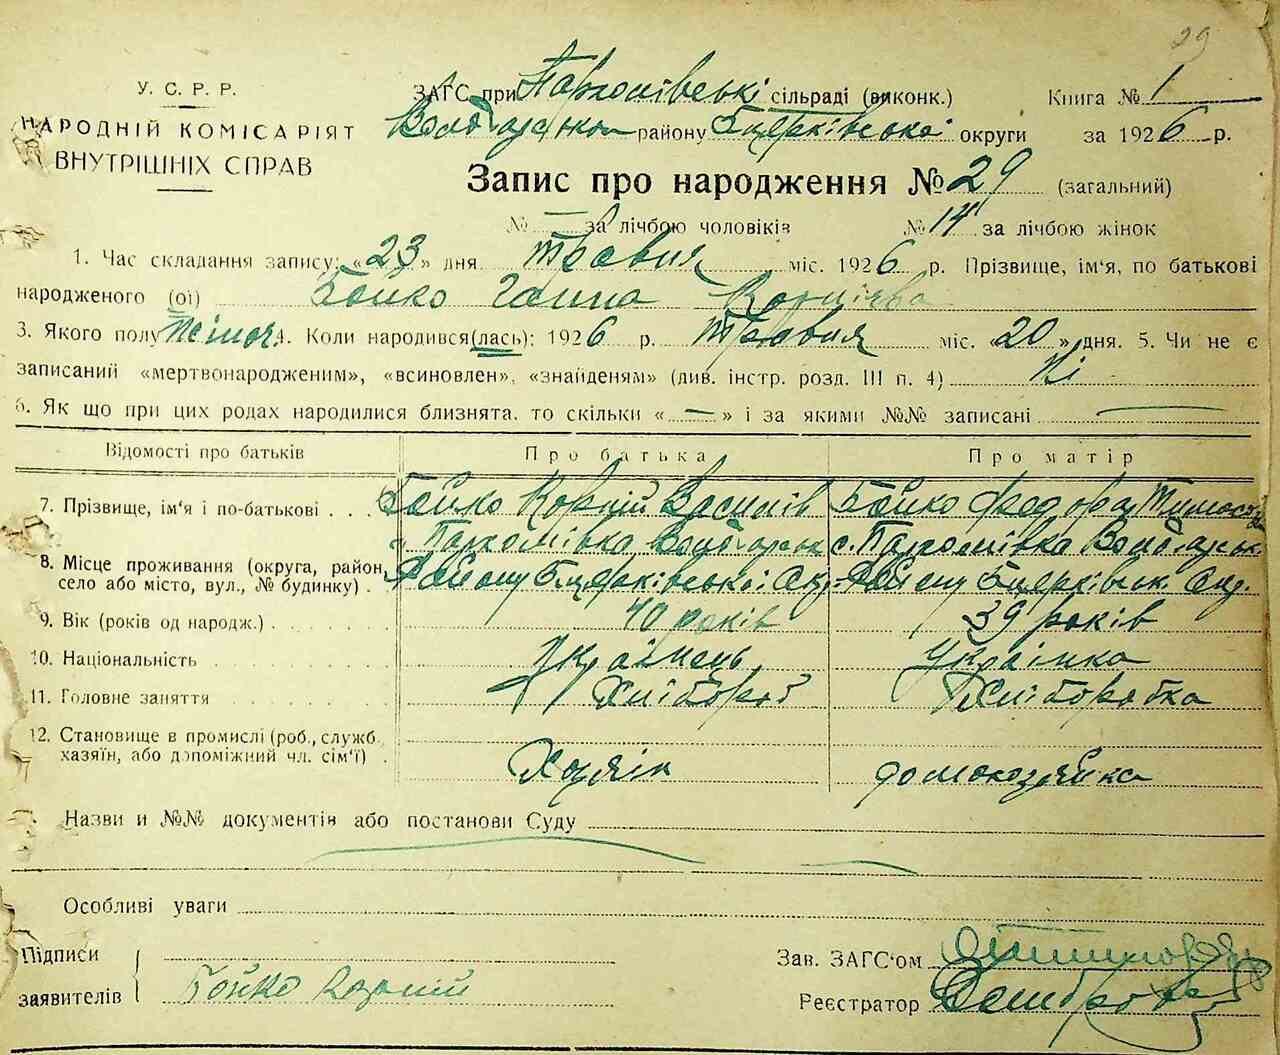 29
У. С. Р. Р.
НАРОДНІЙ КОМІСАРІЯТ
ВНУТРІШНІХ СПРАВ
ЗАГС при Пархомівські сільраді (виконк.)
Книга № 1
району Бцерківської округи
за 1926 р.
Запис про народження № 29 (загальний)
№ — за лічбою чоловіків № 14 за лічбою жінок
1. Час складання запису: «23» дня травня міс. 1926 р. Прізвище, ім'я, по батькові
народженого (ої) Бойко Ганна Корніева
3. Якого полу жіноч. 4. Коли народився(лась): 1926 р. травня міс. «20» дня. 5. Чи не є
записаний «мертвонародженим», «всиновлен», «знайденям» (див. інстр. розд. III п. 4) Ні
6. Як що при цих родах народилися близнята. то скільки «—» і за якими №№ записані —
Відомості про батьків
Про батька
Про матір
7. Прізвище, ім'я і по-батькові . . . Бойко Корній Василів Бойко Федора
8. Місце проживання (округа, район, село або місто, вул., № будинку) .
Пархомівка Володарськ
Району Бцерківської Окр.
с. Пархомівка Володарськ
Району Бцерківськ. Окр.
9. Вік (років од народж.) . 40 років 39 років
10. Національність Українець Українка
11. Головне заняття Хлібороб Хліборобка
12. Становище в промислі (роб., служб.
хазяїн, або допоміжний чл. сім'ї) . Хазяін домохозяйка
Назви и №№ документів або постанови Суду
Особливі уваги
Підписи
заявителів Бойко Корній
Зав. ЗАГС'ом
Реєстратор